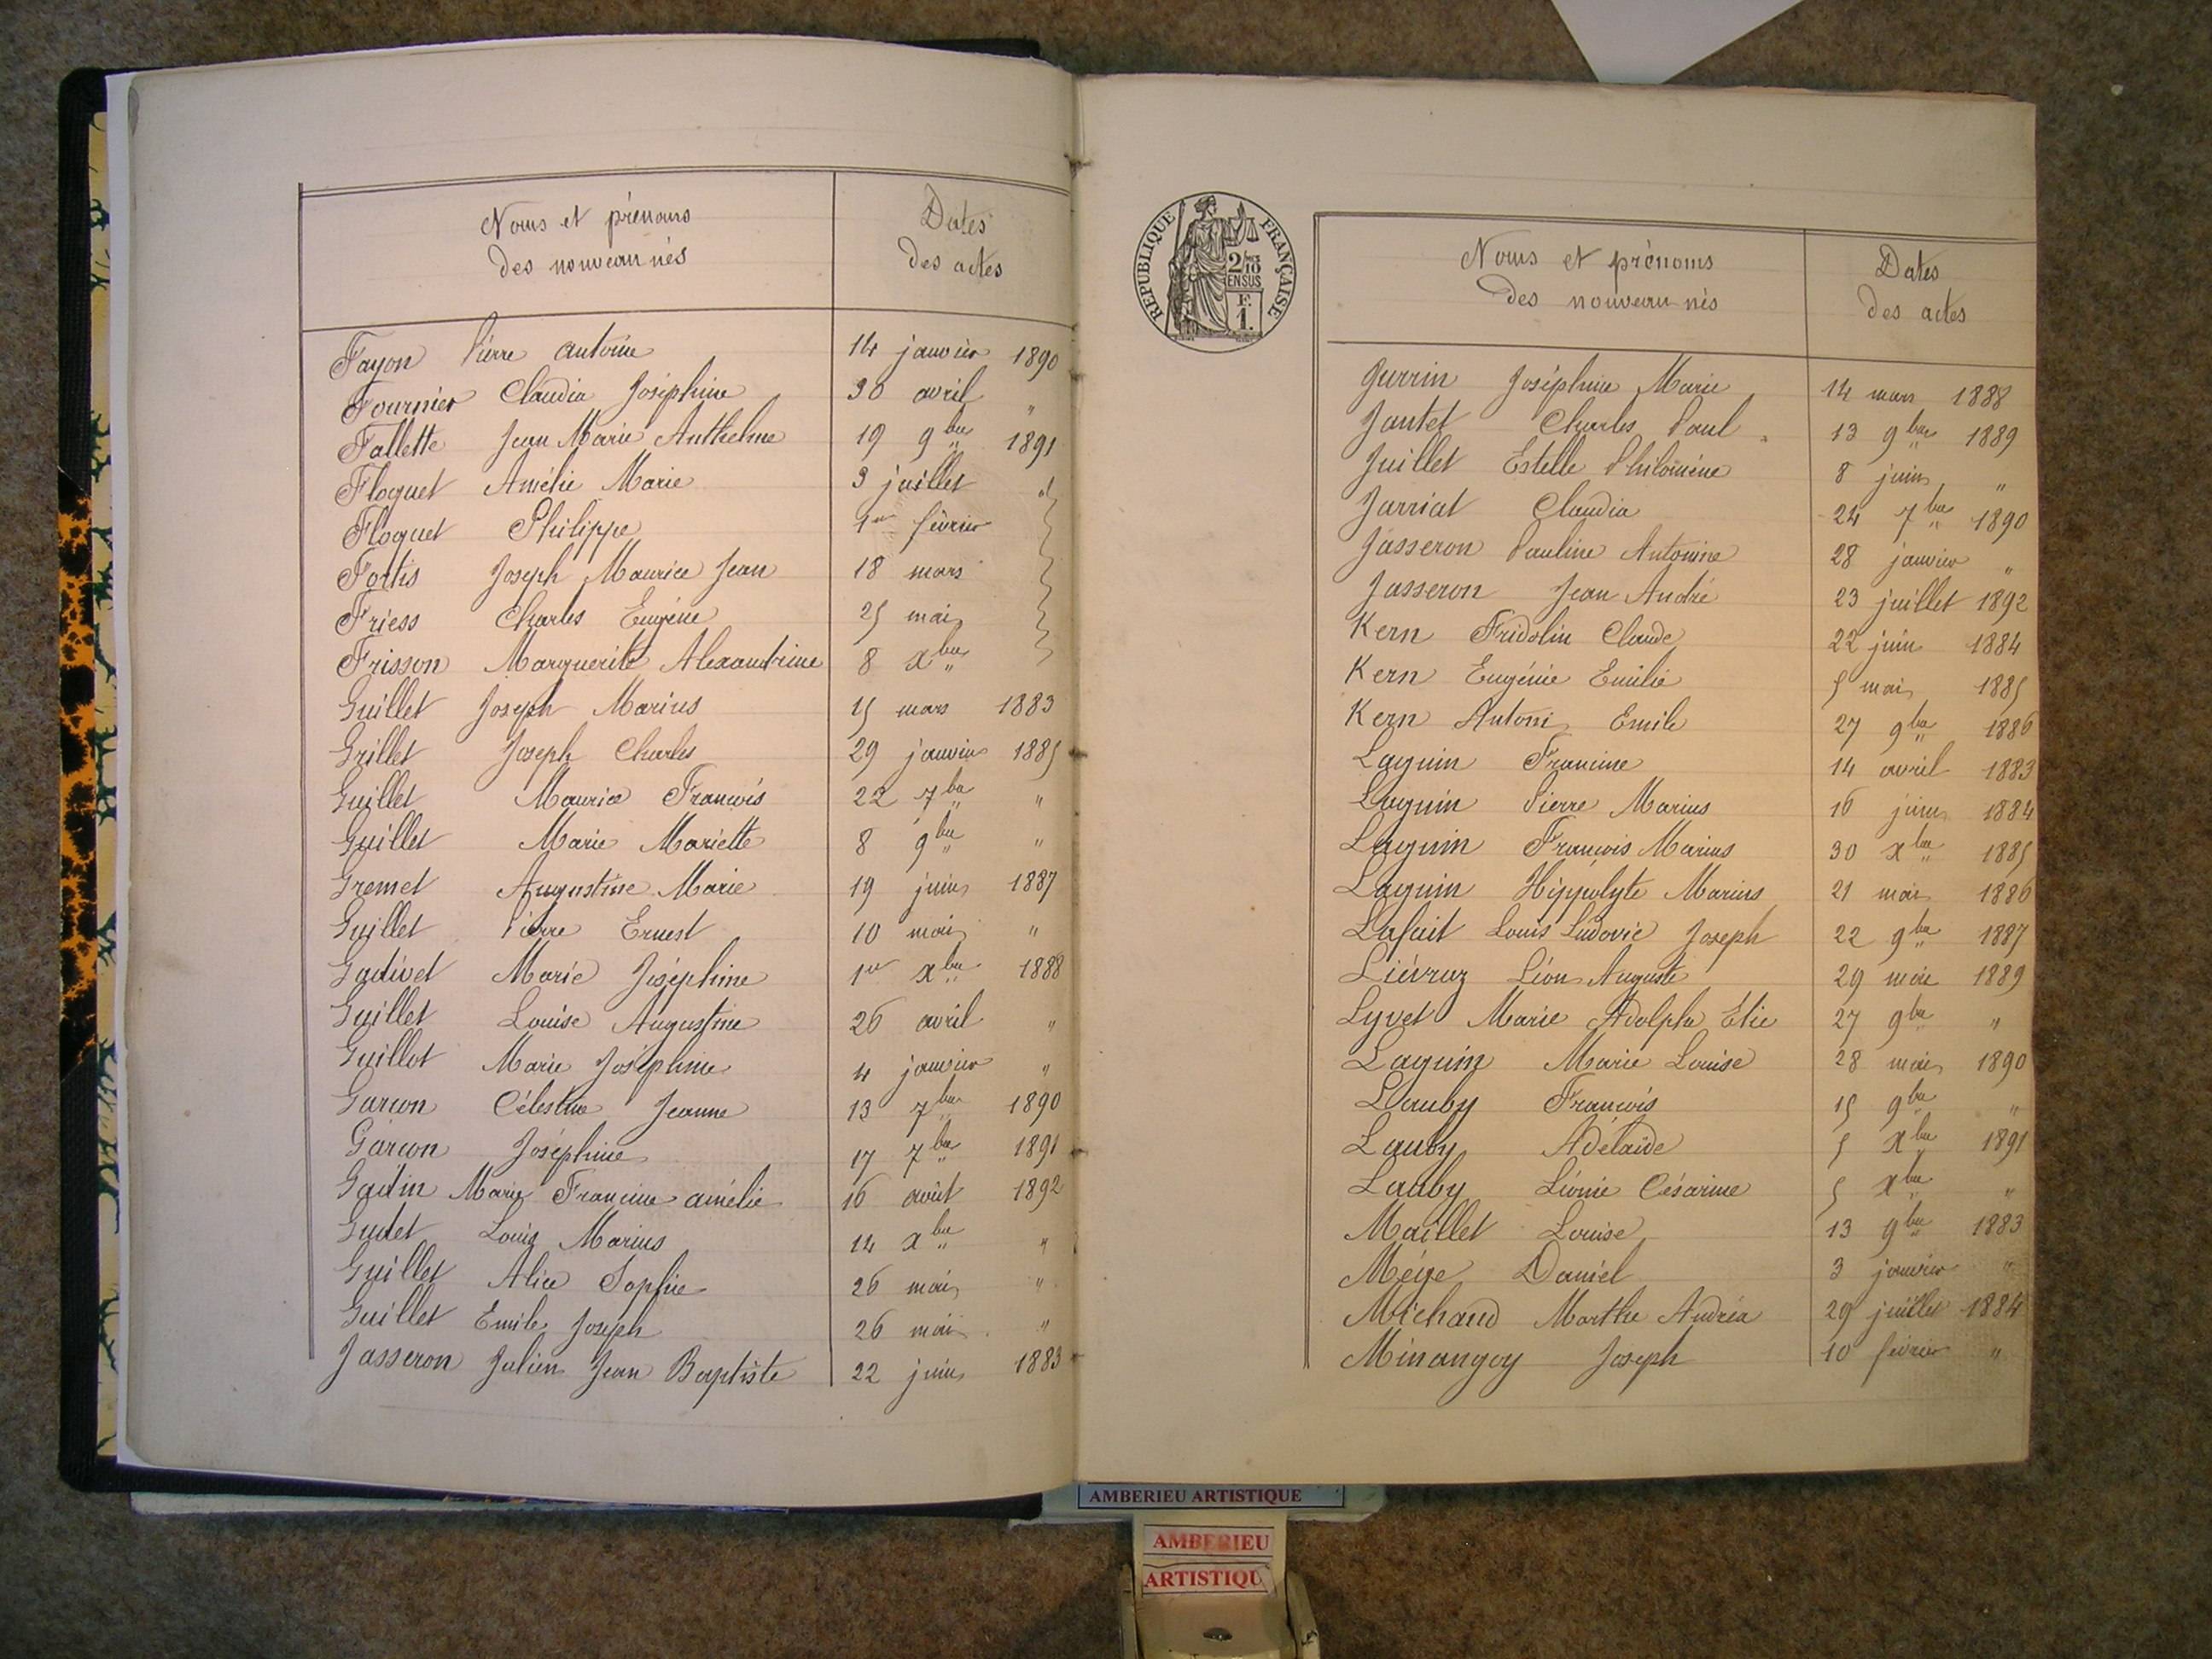 Noms et prénoms
des nouveau nés
Dates
des actes
Fayon Pierre Antoine 14 janvier 1890
Fournier Claudia Joséphine 30 avril "
Fallette Jean Marie Anthelme 19 9bre 1891
Floquet Amélie Marie 3 juillet "
Floquet Philippe 1er février
Fortis Joseph Maurice Jean 18 mars
Friess Charles Eugène 25 mai
Frisson Marguerite Alexandrine 8 xbre
Guillet Joseph Marius 15 mars 1883
Grillet Joseph Charles 29 janvier 1885
Guillet Maurice François 22 7bre "
Guillet Marie Mariette 8 9bre "
Gremet Augustine Marie 19 juin 1887
Guillet Pierre Ernest 10 mai "
Gadivet Marie Joséphine 1er xbre 1888
Guillet Louise Augustine 26 avril "
Guillot Marie Joséphine 4 janvier "
Garcon Célestine Jeanne 13 7bre 1890
Garcon Joséphine 17 7bre 1891
Gadin Marie Francine amélie 16 août 1892
Gudet Louis Marius 14 xbre "
Guillet Alice Sophie 26 mai "
Guillet Emile Joseph 26 mai "
Jasseron Julien Jean Baptiste 22 juin 1883
REPUBLIQUE FRANÇAISE
2/10
EN SUS
F.
1.
Noms et prénoms
des nouveau nés
Dates
des actes
Joséphine Marie 14 mars 1888
Jantet Charles Paul 13 9bre 1889
Juillet Estelle Philomène 8 juin "
Jarriat Claudia 24 7bre 1890
Jasseron Pauline Antonine 28 janvier "
Jasseron Jean André 23 juillet 1892
Kern Fridolin Claude 22 juin 1884
Kern Eugénie Emilie 5 mai 1885
Kern Antoni Emile 27 9bre 1886
Laguin Francine 14 avril 1883
Laguin Pierre Marius 16 juin 1884
Laguin François Marius 30 xbre 1885
Laguin Hippolyte Marius 21 mai 1886
Lafait Louis Ludovic Joseph 22 9bre 1887
Liévruz Léon Auguste 29 mai 1889
Lyvet Marie Adolphe Elie 27 9bre "
Laguin Marie Louise 28 mai 1890
Lauby François 15 9bre "
Lauby Adélaïde 5 xbre 1891
Lauby Léonie Césarine 5 xbre "
Maillet Louise 13 9bre 1883
Méige Daniel 3 janvier "
Michaud Marthe Andréa 29 juillet 1884
Minangoy Joseph 10 février "
AMBERIEU ARTISTIQUE
AMBERIEU
ARTISTIQU